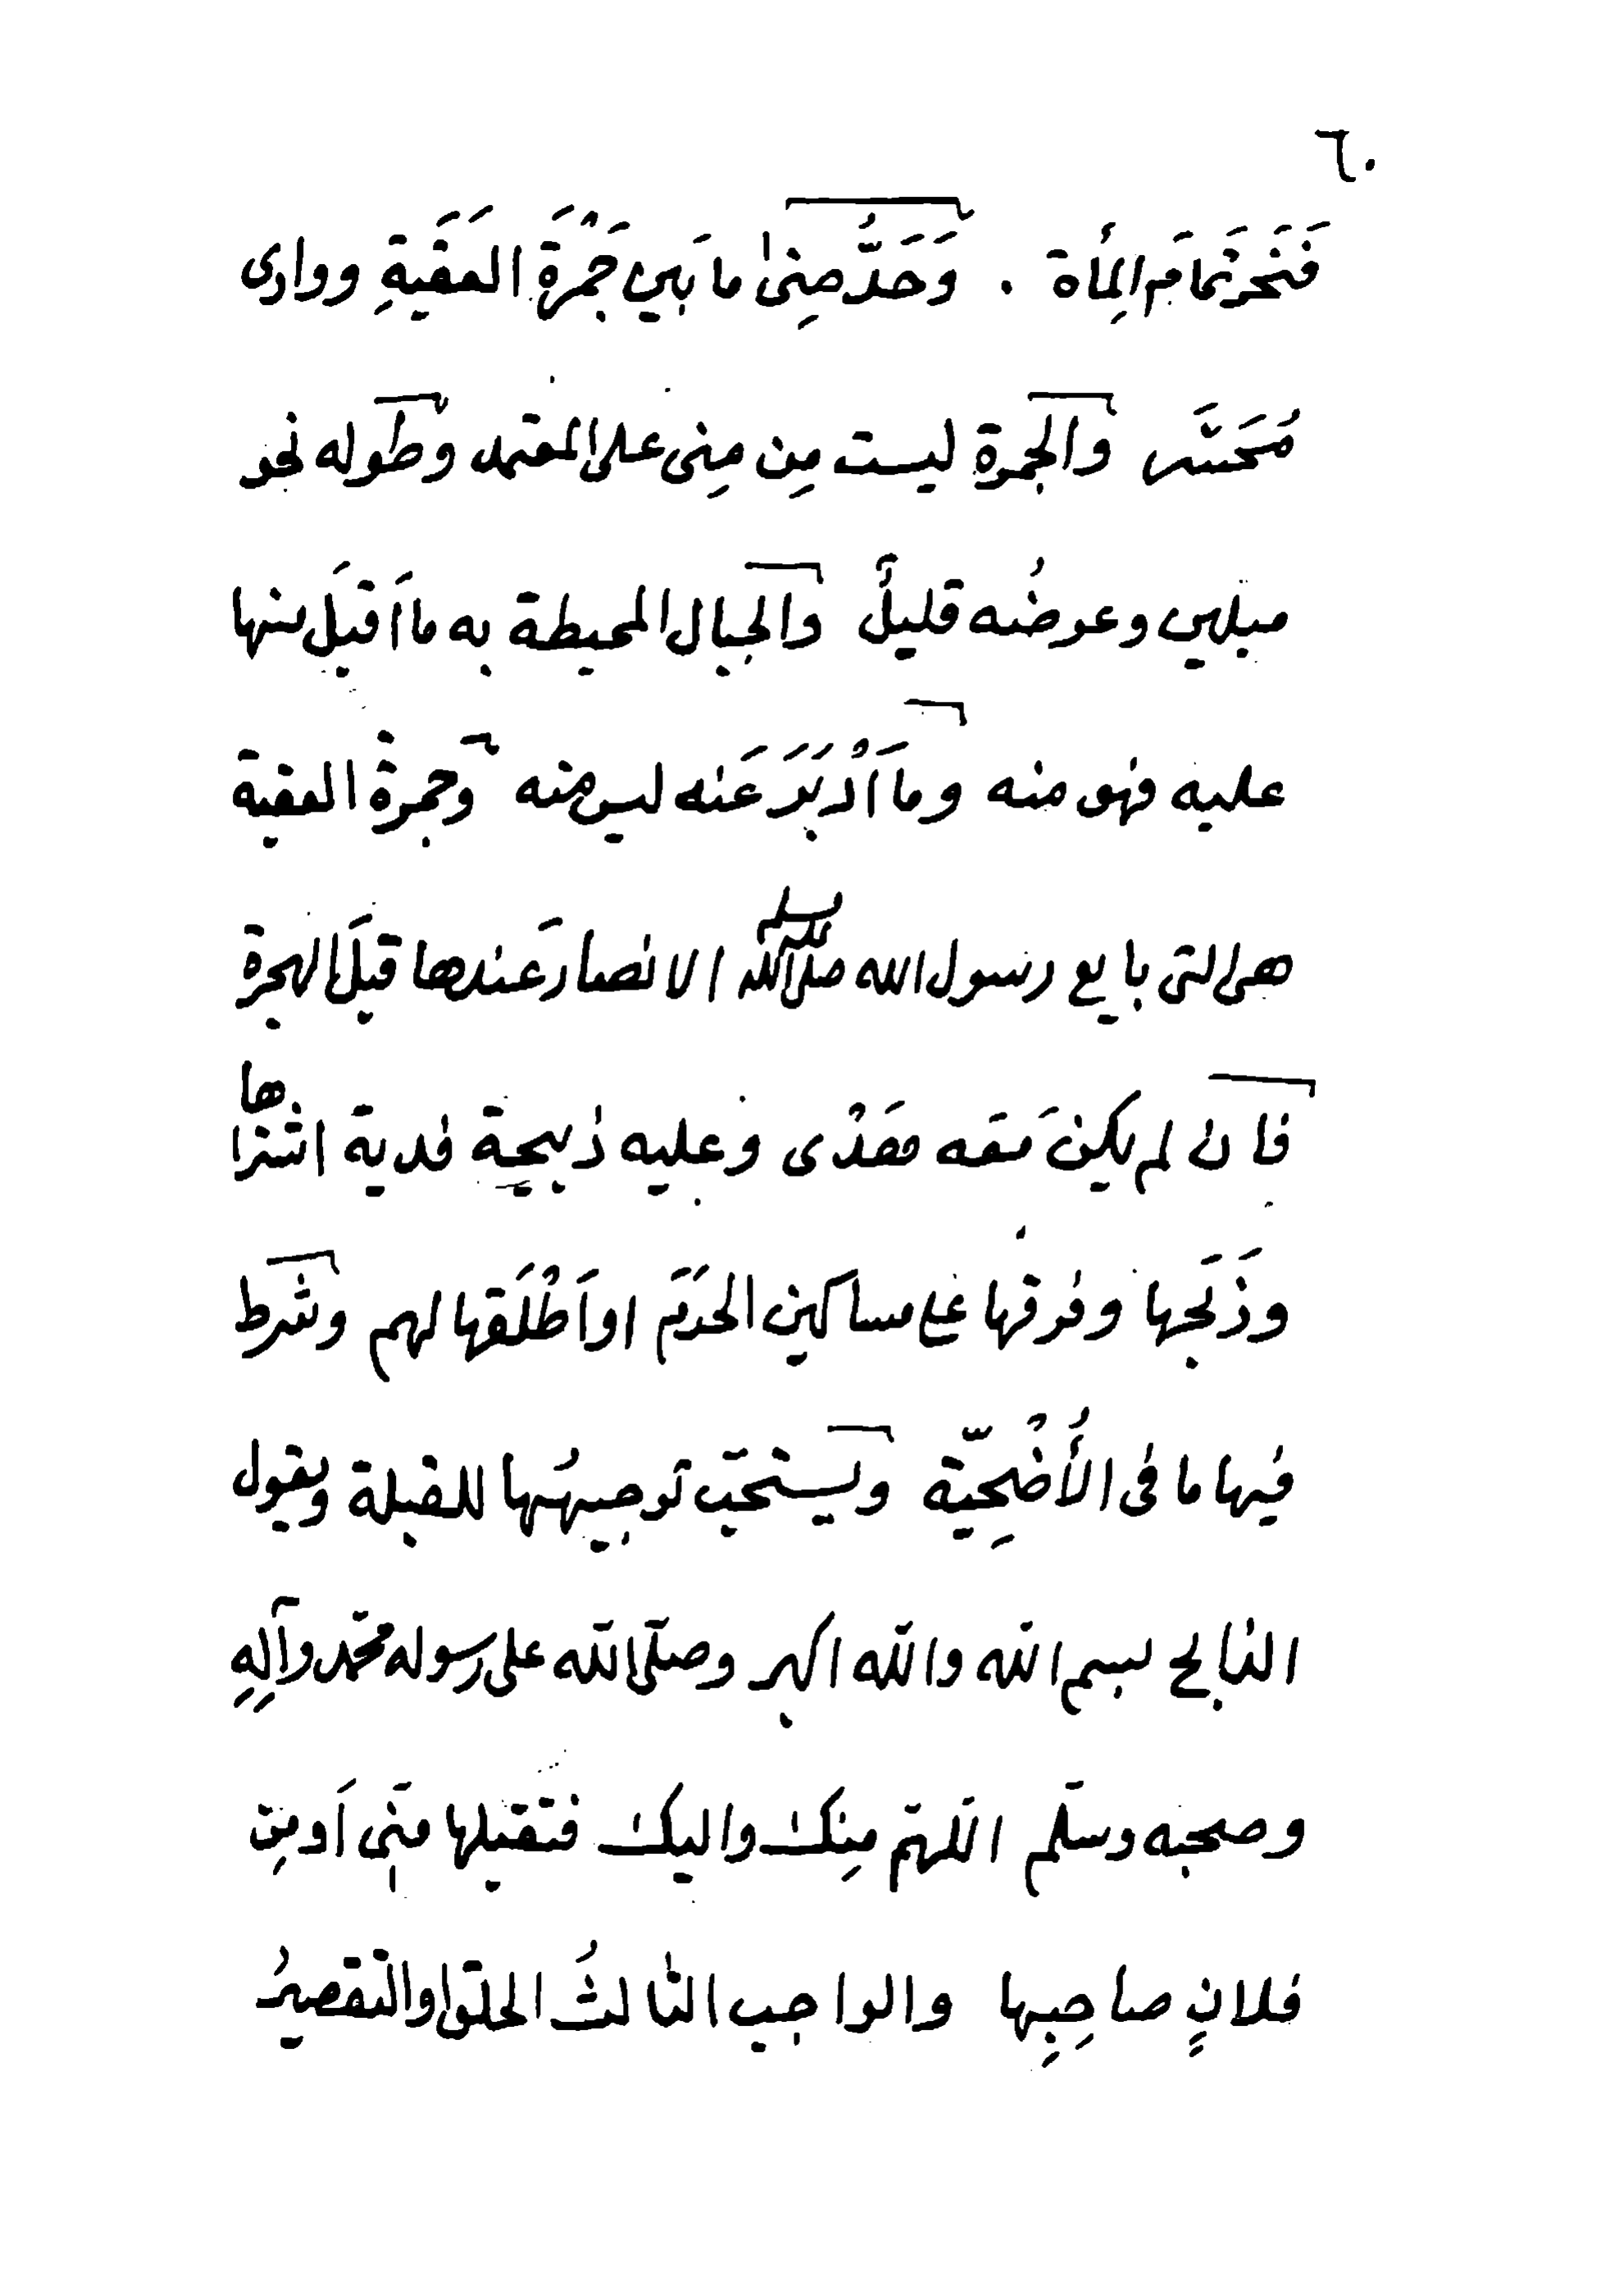 ٦٠
فَنَحَرَ تمَامَ المِأة . وَحَدُّ مِنىٰ ما بَين جَمْرَةِ العَقَبةِ ووادى
مُحَسَّر والجمرة ليست مِن مِنى على المعتمد وطوله نحو
ميلين وعرضُه قليلٌ والجبال المحيطة به ما اَقبَل منها
عليه فهو منه وما اَدْبَرَ عَنه ليس منه وجمرة العقبة
هى التى بايع رسول الله صلى الله عليه وسلم الانصار عَندها قبلَ الهجرة
فان لم يكن مَعَه هَدْى وعليه ذبيحة فدية اشتراها
وذَبَحها وفرقها على مساكين الحَرَم او اَطْلَقها لهم وشرط
فيها ما فى الأُضْحِيّة ويستحبّ توجيهُها للقبلة ويقول
الذابح بسم الله والله اكبر وصلّى الله على رسوله محمّد وآلِهِ
وصحبه وسلّم اللّهمّ مِنك واليك فتقبلها منّى اَو مِن
فلانٍ صاحِبِها والواجب الثالثُ الحلق او التقصيرُ